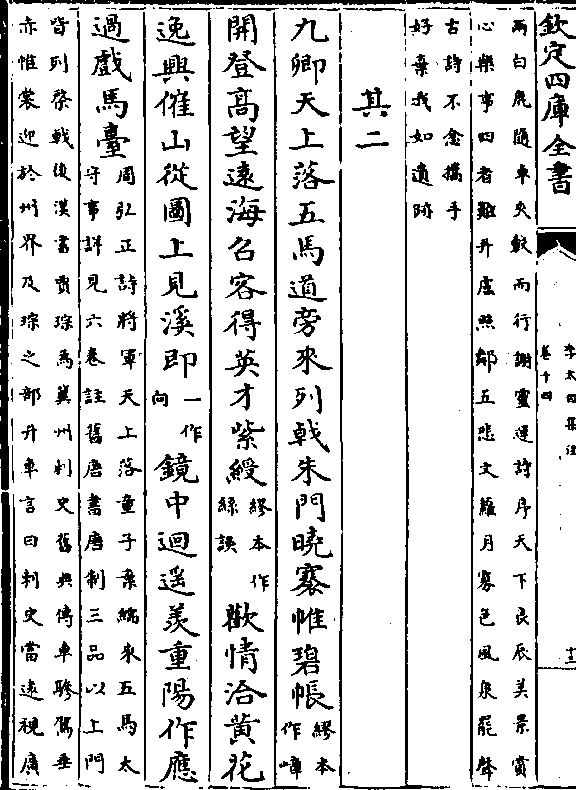 欽定四庫全書
李太白集注
卷十四
十三
兩白鹿隨車夾轂而行謝靈運詩序天下良辰美景賞
心樂事四者難并盧照鄰五悲文蘿月寡色風泉罷聲
古詩不念攜手
好棄我如遺跡
其二
九卿天上落五馬道旁來列戟朱門曉褰帷碧帳繆本作嶂
開登高望遠海召客得英才紫綬繆本作絲誤歡情洽黃花
逸興催山從圖上見溪即一作向鏡中迴遥羡重陽作應
過戲馬臺周弘正詩將軍天上落童子棄繻來五馬太
守事詳見六卷註舊唐書唐制三品以上門
皆列棨戟後漢書賈琮為冀州刺史舊典傳車驂駕垂
赤帷裳迎於州界及琮之部升車言曰刺史當遠視廣